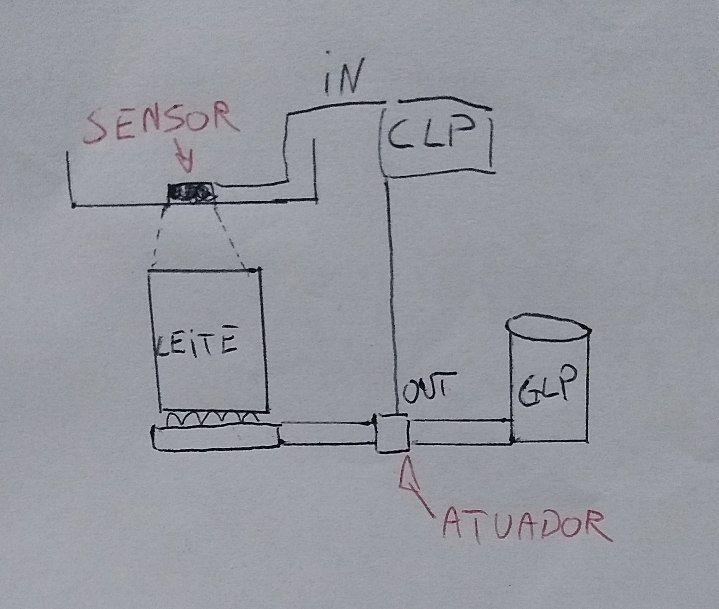 iN
SENSOR
CLP
LEiTE
OUT
GLP
ATUADOR